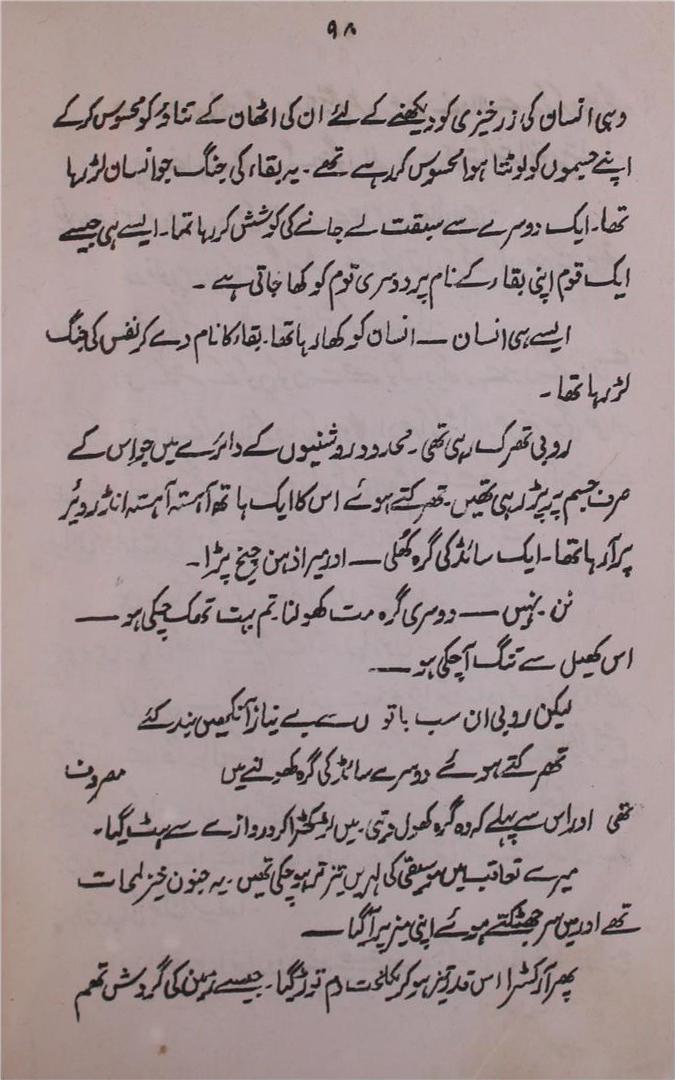 ۹۸
وہی انسان کی زرخیزی کو دیکھنے کے لئے ان کی اٹھان کے تناؤ کو محسوس کرکے
اپنے جسموں کو ٹوٹتا ہوا محسوس کر رہے تھے۔ یہ بقاء کی جنگ جو انسان لڑ رہا
تھا۔ ایک دوسرے سے سبقت لے جانے کی کوشش کر رہا تھا۔ ایسے ہی جیسے
ایک قوم اپنی بقاء کے نام پر دوسری قوم کو کھا جاتی ہے۔
ایسے ہی انسان — انسان کو کھا رہا تھا۔ بقاء کا نام دے کر نفس کی جنگ
لڑ رہا تھا۔
روبی تھرک رہی تھی۔ محدود روشنیوں کے دائرے میں جو اس کے
صرف جسم پر پڑ رہی تھیں۔ تھرکتے ہوئے اس کا ایک ہاتھ آہستہ آہستہ انڈرویئر
پر آ رہا تھا۔ ایک سائڈ کی گرہ کھلی — اور میرا ذہن چیخ پڑا۔
نن۔ نہیں — دوسری گرہ مت کھولنا۔ تم بہت تھک چکی ہو —
اس کھیل سے تنگ آ چکی ہو —
لیکن روبی ان سب باتوں سے بے نیاز آنکھیں بند کئے
تھرکتے ہوئے دوسرے سائڈ کی گرہ کھولنے میں مصروف
تھی اور اس سے پہلے کہ وہ گرہ کھول دیتی۔ میں لڑکھڑا کر دروازے سے ہٹ گیا۔
میرے تعاقب میں موسیقی کی لہریں تیز تر ہو چکی تھیں۔ یہ جنون خیز لمحات
تھے اور میں سر جھٹکتے ہوئے اپنی میز پر آ گیا —
پھر آرکسٹرا اس قدر تیز ہو کر یکلخت دم توڑ گیا۔ جیسے زمین کی گردش تھم